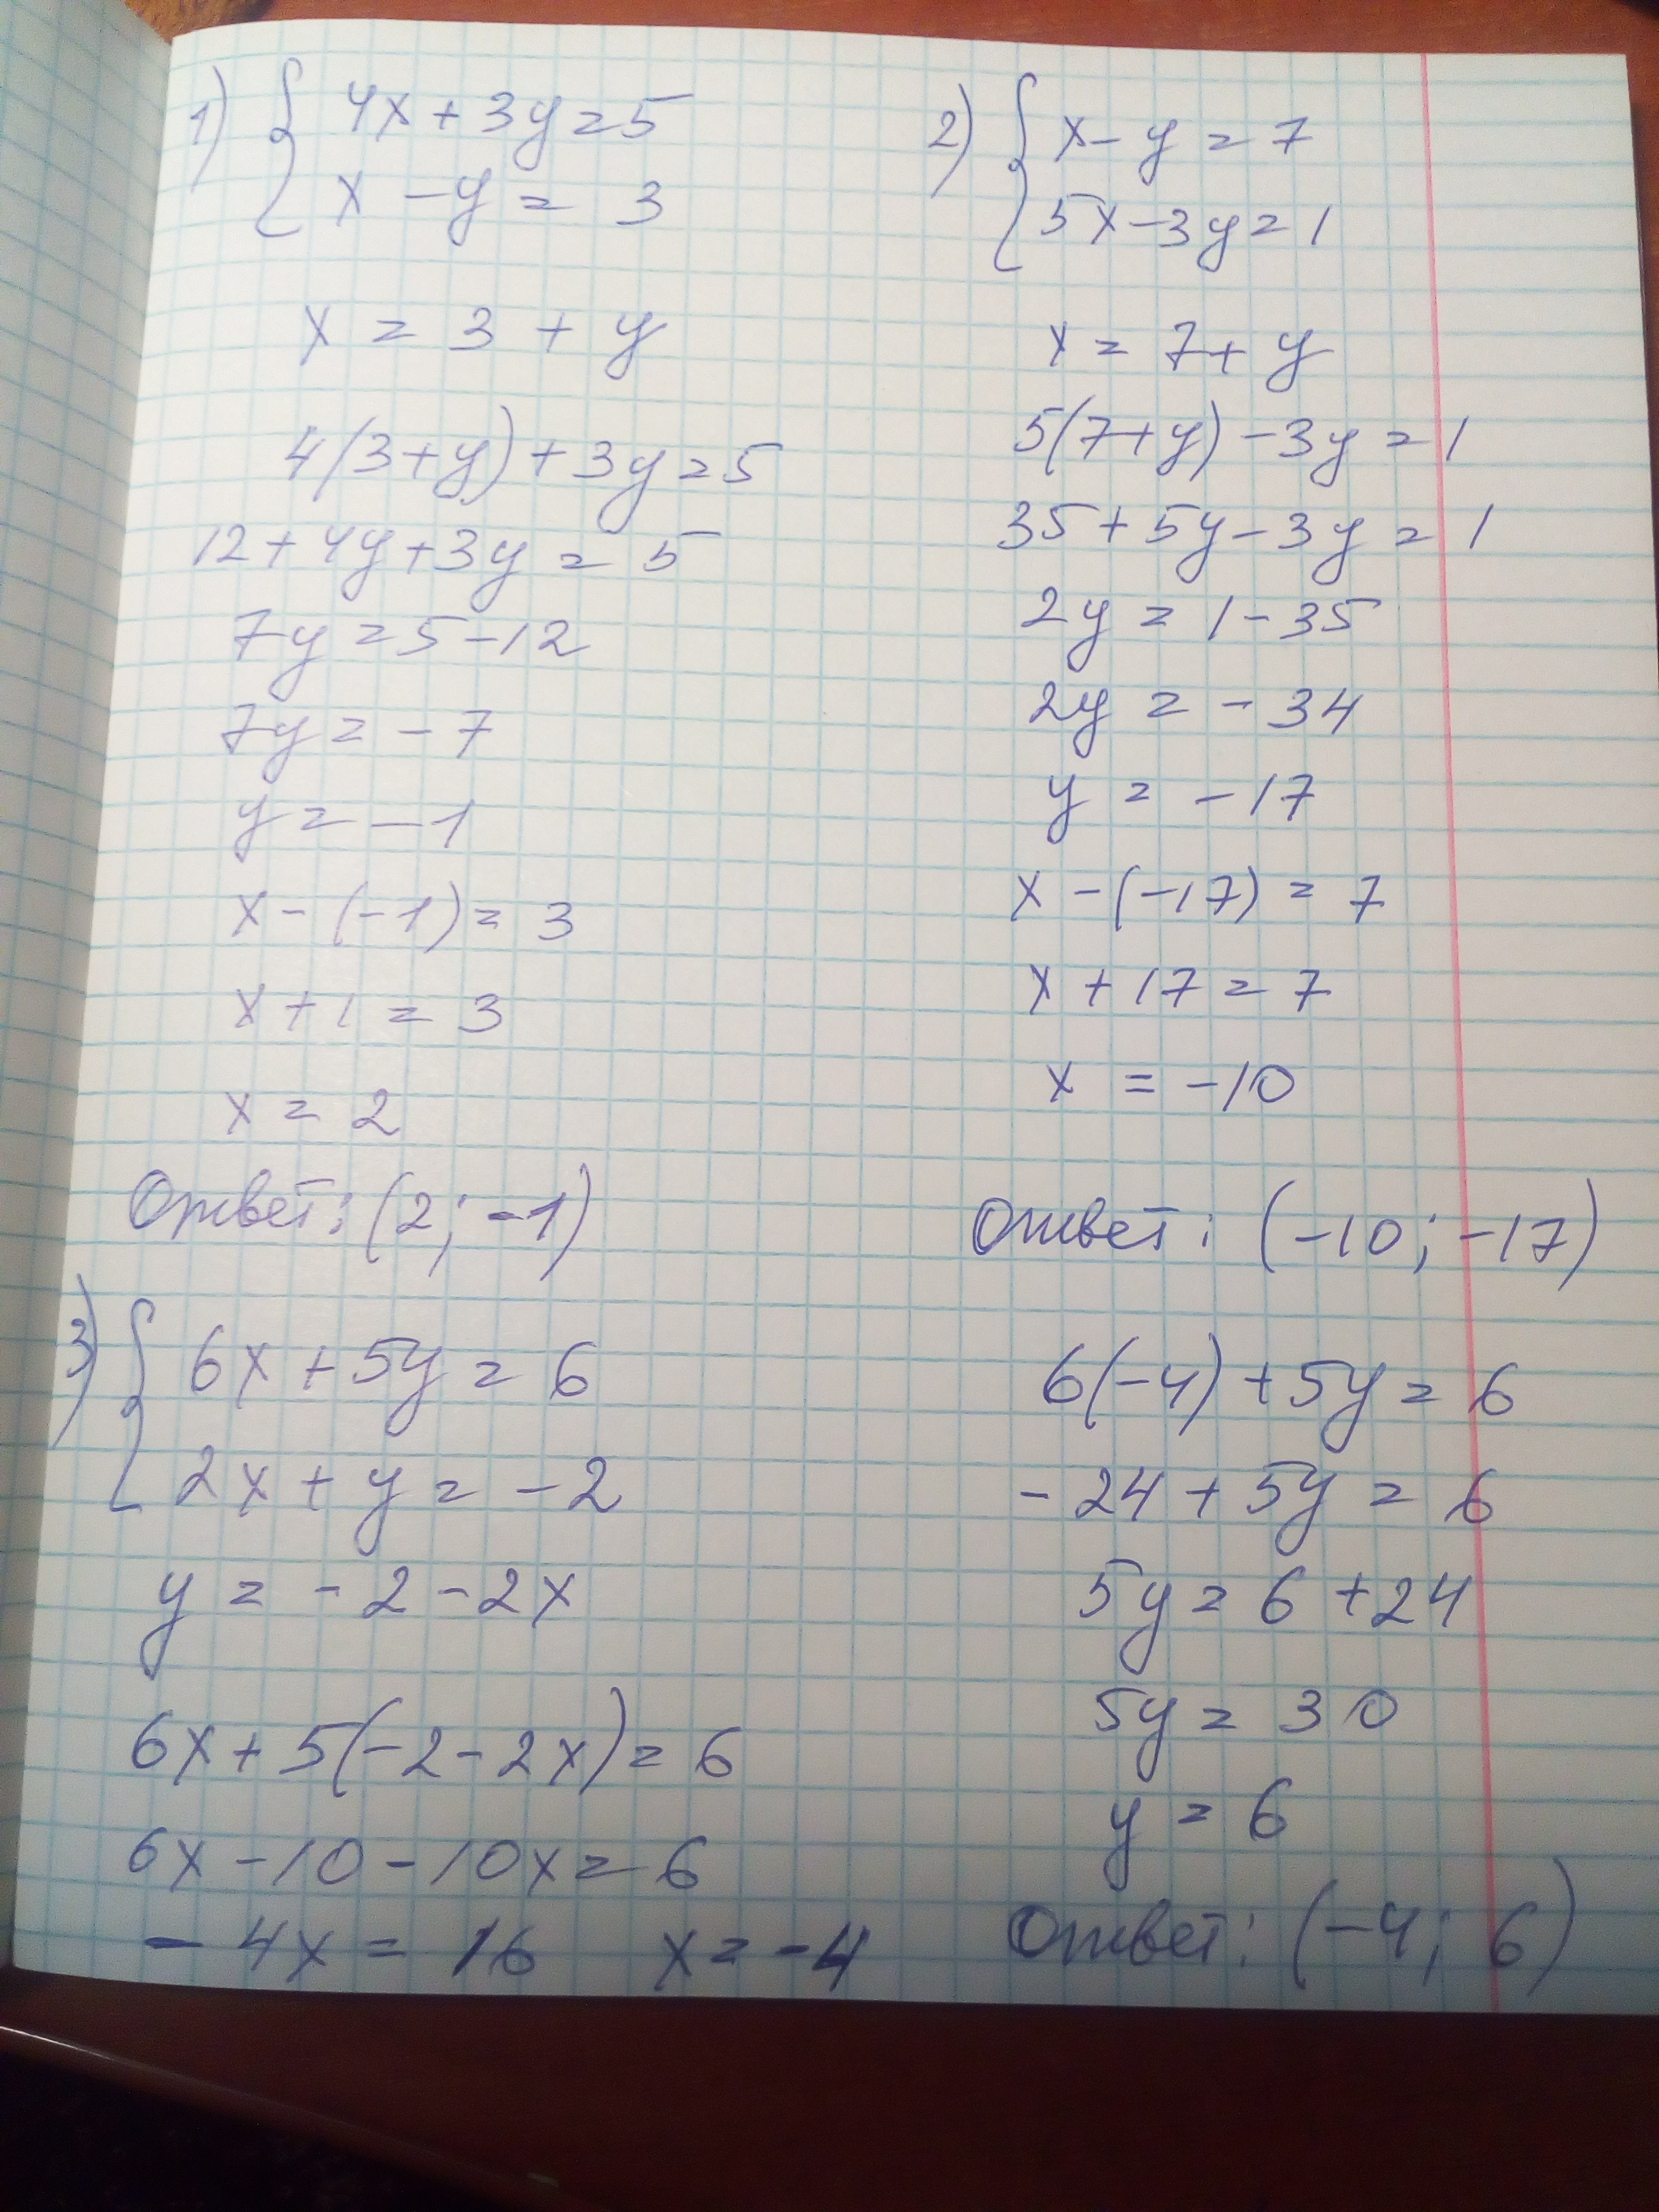 1) { 4x + 3y = 5
x - y = 3
x = 3 + y
4(3+y) + 3y = 5
12 + 4y + 3y = 5
7y = 5 - 12
7y = - 7
y = - 1
x - (-1) = 3
x + 1 = 3
x = 2
Ответ: (2; -1)
2) { x - y = 7
5x - 3y = 1
x = 7 + y
5(7+y) - 3y = 1
35 + 5y - 3y = 1
2y = 1 - 35
2y = - 34
y = - 17
x - (-17) = 7
x + 17 = 7
x = -10
Ответ: (-10; -17)
3) { 6x + 5y = 6
2x + y = -2
y = - 2 - 2x
6x + 5(-2 - 2x) = 6
6x - 10 - 10x = 6
- 4x = 16 x = -4
6(-4) + 5y = 6
- 24 + 5y = 6
5y = 6 + 24
5y = 30
y = 6
Ответ: (-4; 6)